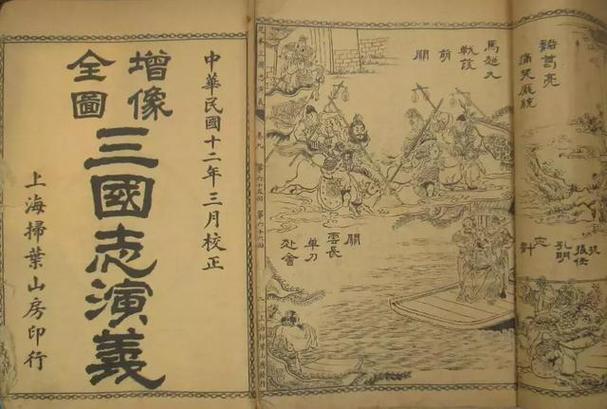 中華民國十二年三月校正
增像
全圖
三國志演義
上海掃葉山房印行
馬超大
戰葭
萌
關
關
雲長
單刀
赴會
諸葛亮
痛哭龐統
孔明
定
計
張任